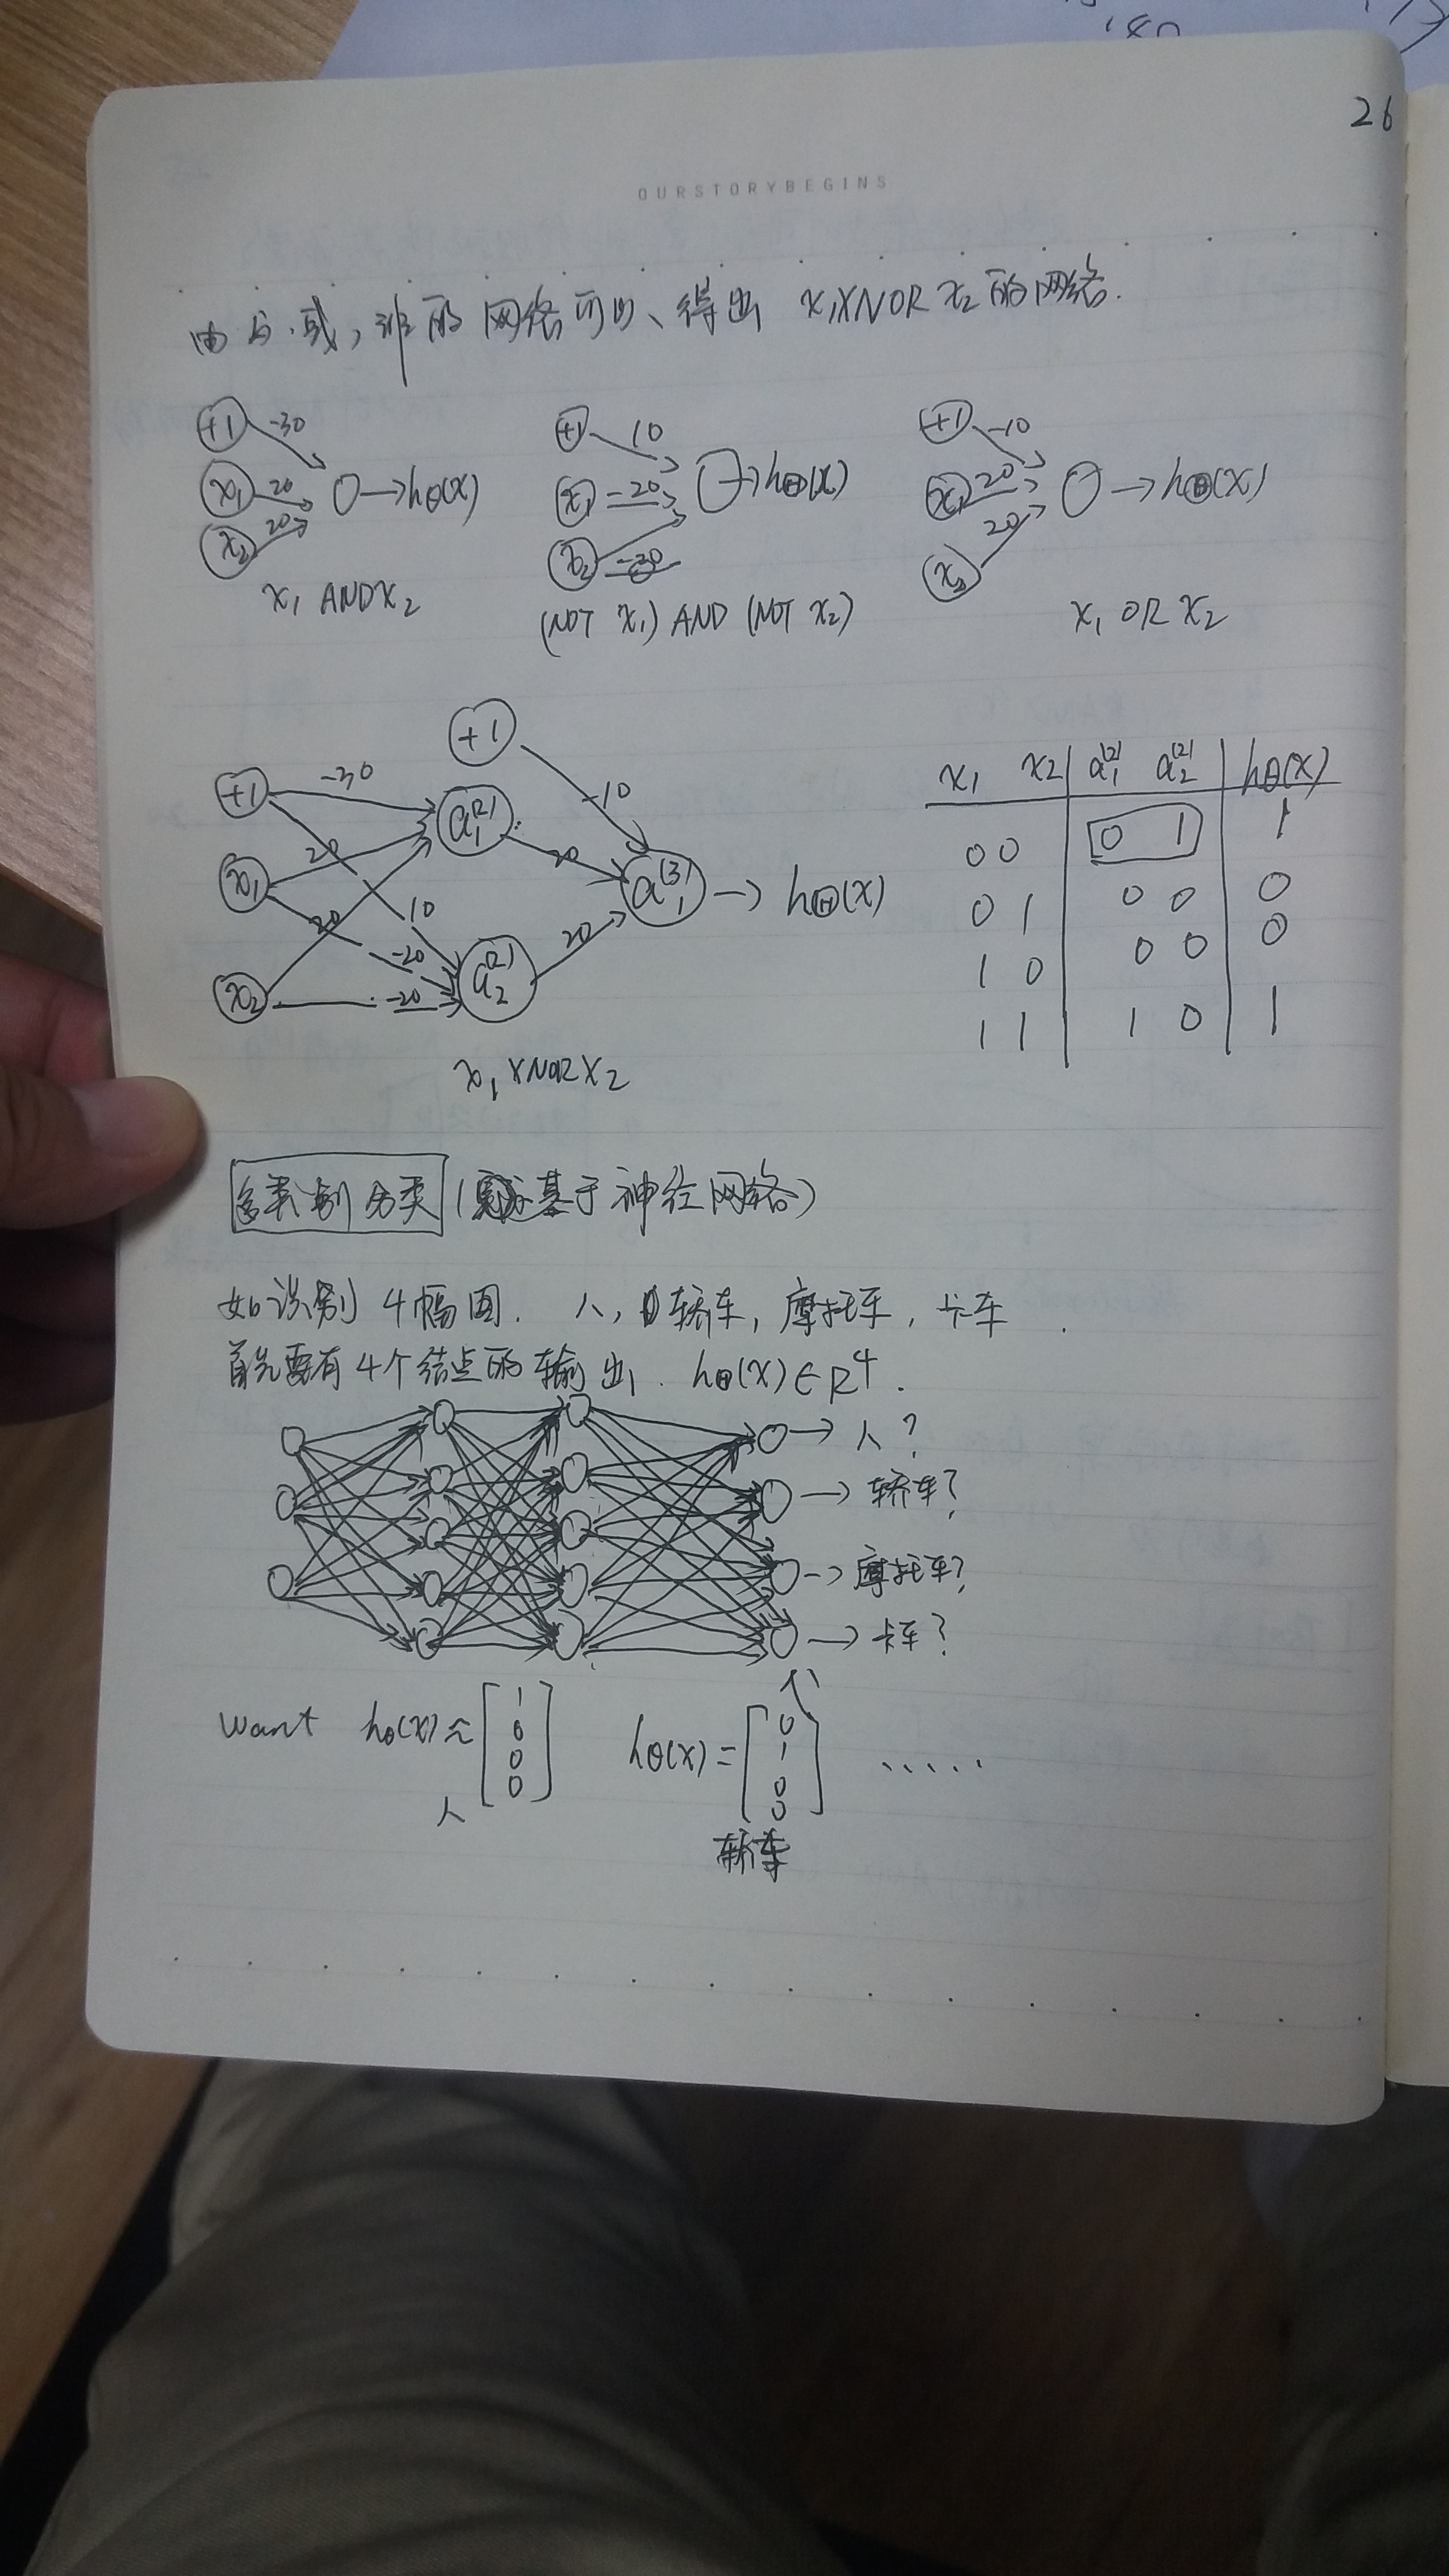 26
OURSTORYBEGINS
由与.或,非的网络可以、得出 x₁XNOR x₂的网络.
+1 -30
x₁ 20 → hθ(x)
x₂ 20
x₁ AND x₂
+1 10
x₁ -20 → hΘ(x)
x₂ -20
(NOT x₁) AND (NOT x₂)
+1 -10
x₁ 20 → hΘ(x)
x₂ 20
x₁ OR x₂
+1
+1 -30 a₁⁽²⁾ -10
x₁ 20 20 a₁⁽³⁾ → hΘ(x)
20 10 -20 20
x₂ -20 a₂⁽²⁾
x₁ XNOR x₂
x₁ x₂ a₁⁽²⁾ a₂⁽²⁾ hθ(x)
0 0 0 1 1
0 1 0 0 0
1 0 0 0 0
1 1 1 0 1
多类别分类 (基于神经网络)
如识别 4幅图. 人, 轿车, 摩托车, 卡车.
首先要有4个结点的输出. hΘ(x)∈R⁴.
→ 人?
→ 轿车?
→ 摩托车?
→ 卡车?
want hθ(x)≈ [1 0 0 0] hθ(x)= [0 1 0 0] ......
人 轿车